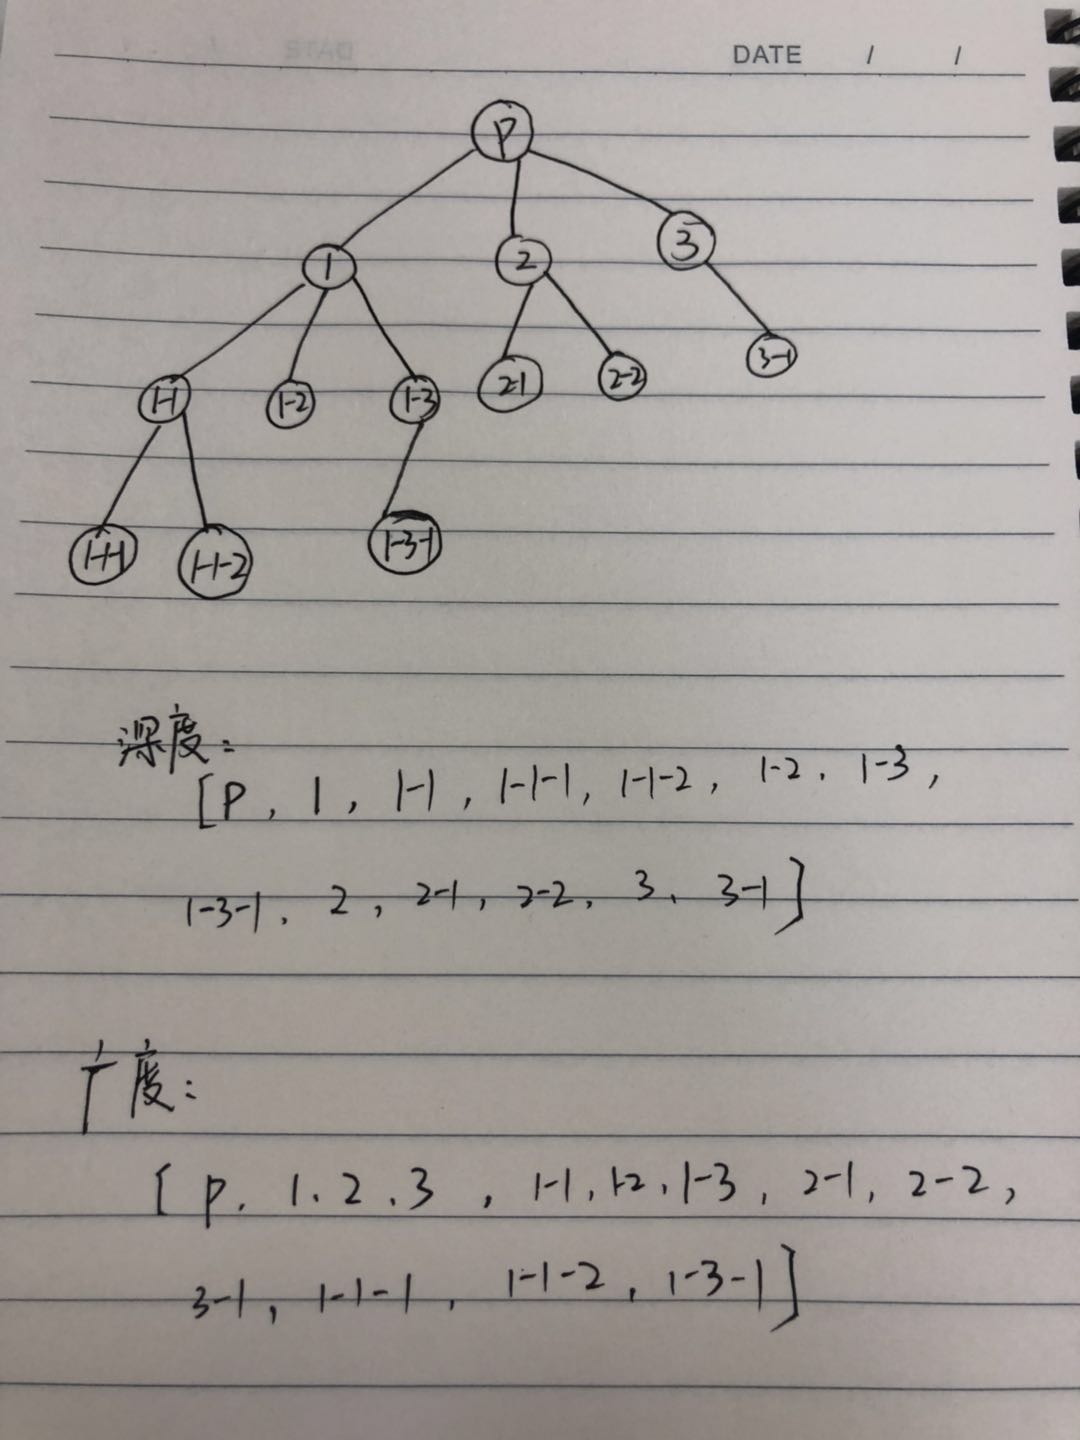 DATE / /
P
1 2 3
1-1 1-2 1-3 2-1 2-2 3-1
1-1-1 1-1-2 1-3-1
深度:
[P, 1, 1-1, 1-1-1, 1-1-2, 1-2, 1-3,
1-3-1, 2, 2-1, 2-2, 3, 3-1]
广度:
[P, 1, 2, 3, 1-1, 1-2, 1-3, 2-1, 2-2,
3-1, 1-1-1, 1-1-2, 1-3-1]